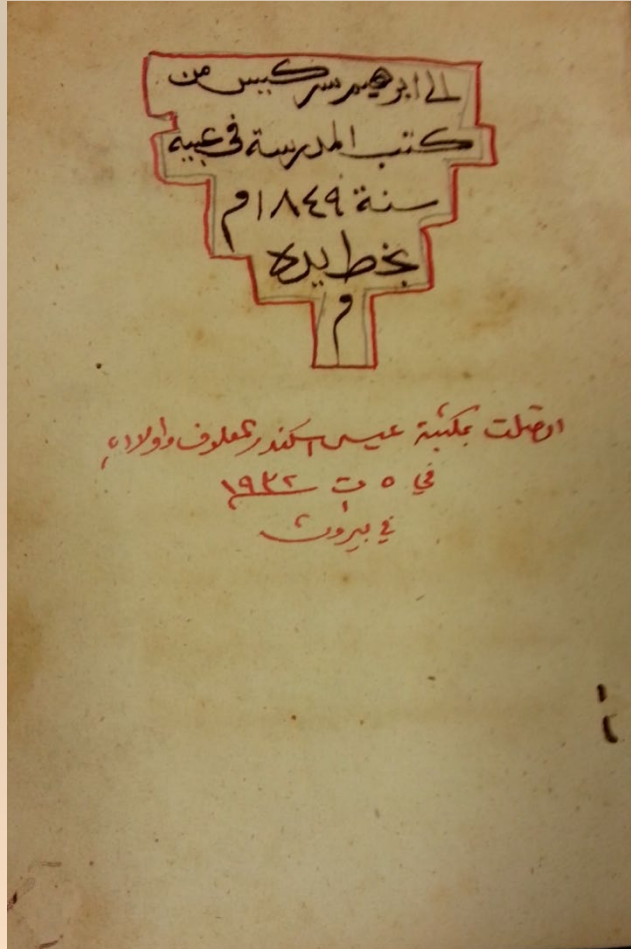 الى ابرهيم سركيس من
كتب المدرسة في عبيه
سنة ١٨٤٩م
بخط يده
م
اتصلت بمكتبة عيسى اسكندر المعلوف واولاده
في ٥ ت١ سنة ١٩٣٢
في بيروت